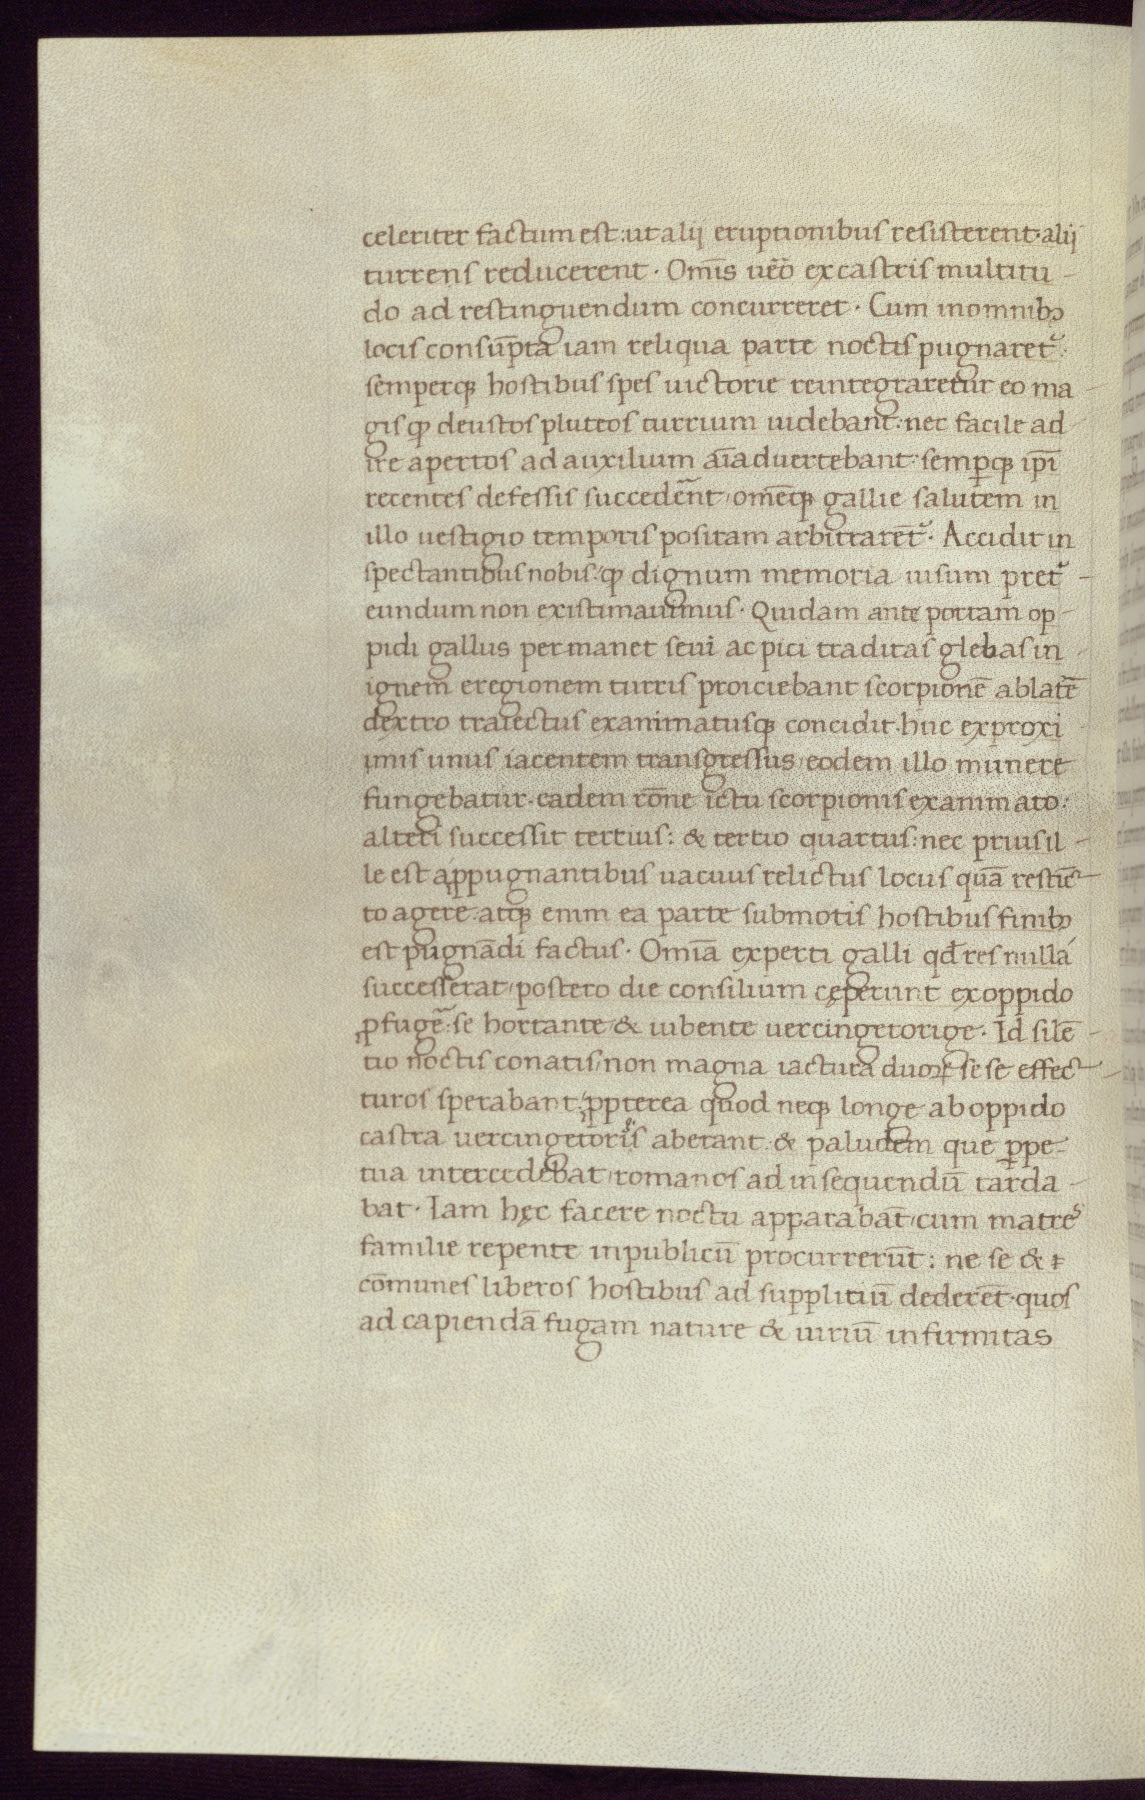 celeriter factum est: ut alij eruptionibus resisterent· alij
turrens reducerent · Om̅s ue̅o̅ ex castris multitu-
do ad restinguendum concurreret · Cum inomnibꝫ
locis consu̅pta iam reliqua parte noctis pugnaretᷣ:
semperqꝫ hostibus spes uictorie reintegraretur eo ma-
gis ꝙ deustos pluteos turrium uidebant: nec facile ad-
ire apertos ad auxilium ai̅aduertebant· semꝑqꝫ ip̅i
recentes defessis succederent, om̅e̅qꝫ gallie salutem in
illo uestigio temporis positam arbitrare̅tᷣ· Accidit in
spectantibus nobis: ꝙ dignum memoria uisum pretᷣ-
eundum non existimauimus · Quidam ante portam op-
pidi gallus per manet seui ac pici traditas glebas in-
ignem eregionem turris proiciebant scorpione̅ ablate̅
dextro traiectus exanimatusqꝫ concidit· huc ex proxi-
imis unus iacentem transgressus, eodem illo munere
fungebatur· eadem ro̅ne ictu scorpionis exanimato:
alteri successit tertius: & tertio quartus: nec prius il-
le est aꝓpugnantibus uacuus relictus locus qua̅ restic̅-
to agere· atqꝫ enim ea parte submotis hostibus finibꝫ
est pugna̅di factus · Omi̅a experti galli qd̅ res nulla
successerat, postero die consilium cęperunt exoppido
ꝓfugere: se hortante & iubente uercingetorige · Id sile̅-
tio noctis conatis, non magna iactura duoꝝ sese effec-
turos sperabant, ꝓpterea quod neqꝫ longe ab oppido
castra uercingetoris aberant· & paludem que ꝑpe-
tua intercedebat, romanos ad insequendu̅ tarda-
bat · Iam hęc facere noctu apparaba̅t, cum matres
familie repente inpublicu̅ procurreru̅t: ne se & ⁊
co̅munes liberos hostibus ad supplitiu̅ dedere̅t· quos
ad capienda̅ fugam nature & uiriu̅ infirmitas